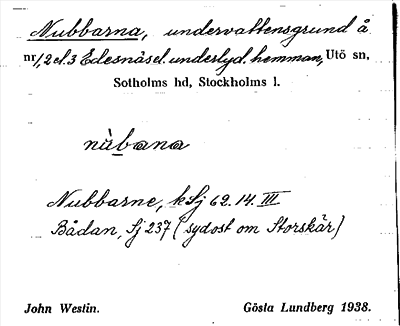 Nubbarna, undervattensgrund å
nr 1, 2 el. 3 Edesnäs el. underlyd. hemman, Utö sn,
Sotholms hd, Stockholms l.
nùbana
Nubbarne, kSj 62. 14. III
Bådan, Sj 237 (sydost om Storskär)
John Westin. Gösta Lundberg 1938.